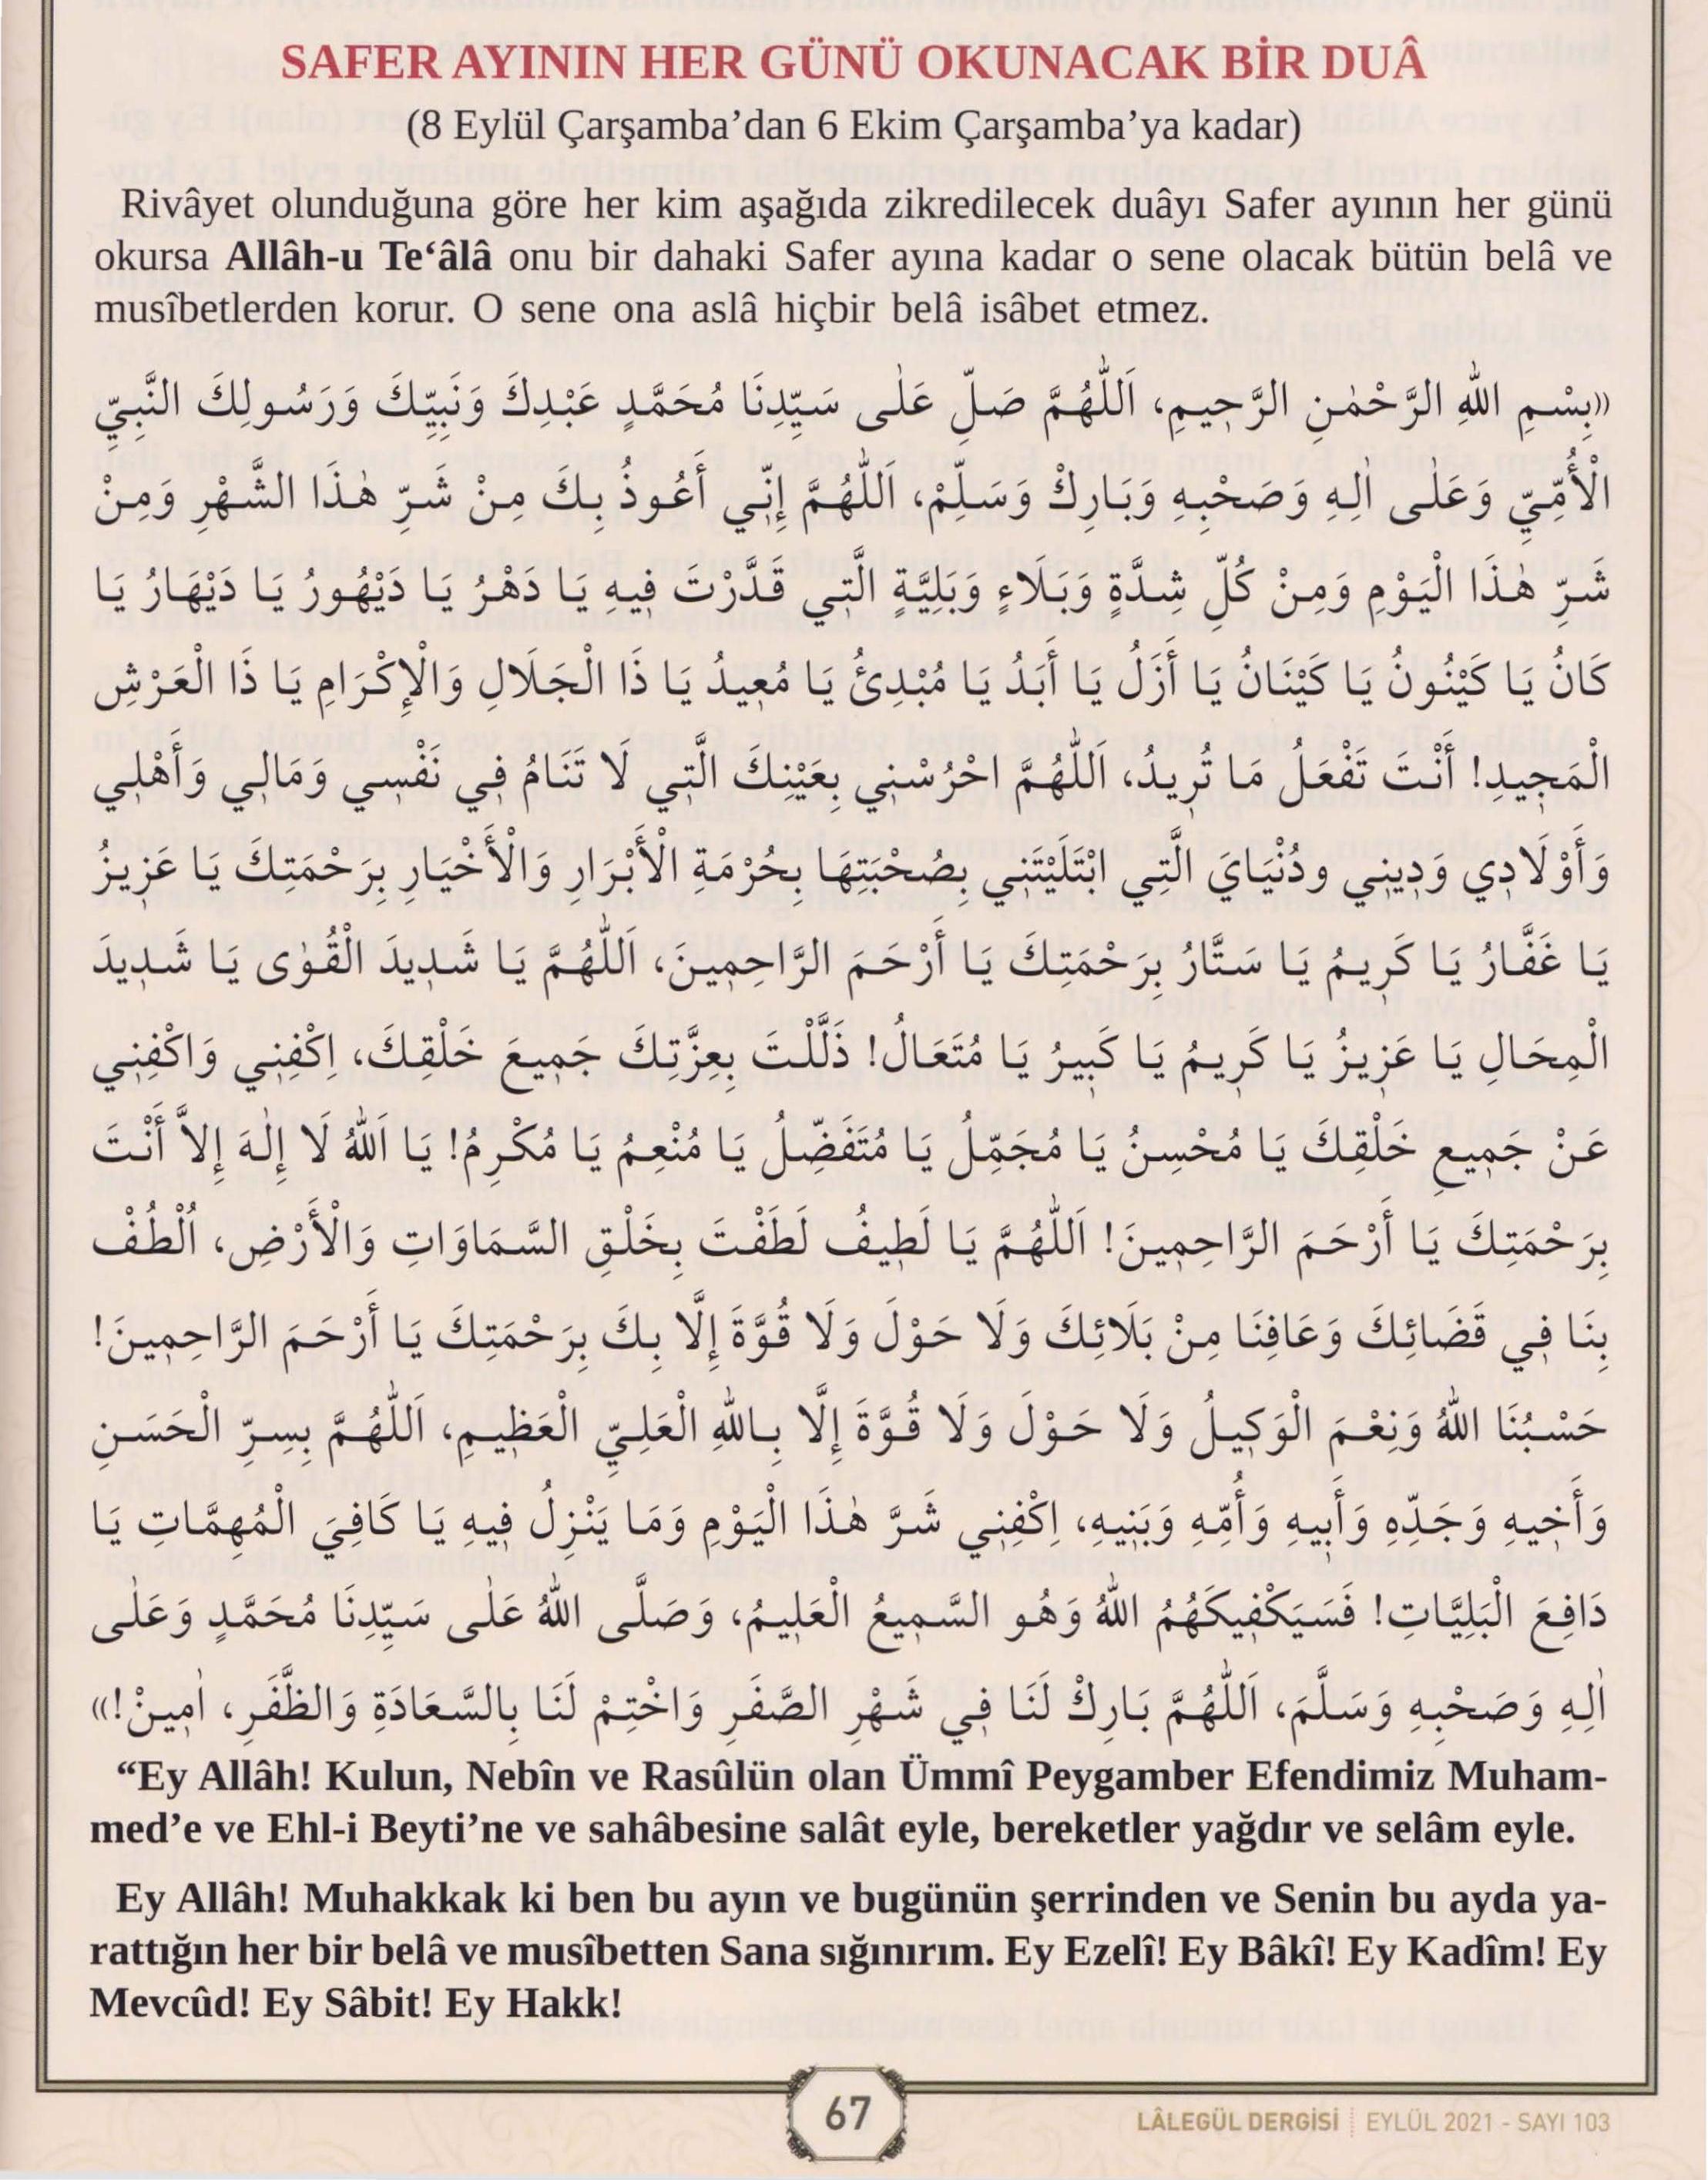 SAFER AYININ HER GÜNÜ OKUNACAK BİR DUÂ
(8 Eylül Çarşamba’dan 6 Ekim Çarşamba’ya kadar)
Rivâyet olunduğuna göre her kim aşağıda zikredilecek duâyı Safer ayının her günü
okursa Allâh-u Te‘âlâ onu bir dahaki Safer ayına kadar o sene olacak bütün belâ ve
musîbetlerden korur. O sene ona aslâ hiçbir belâ isâbet etmez.
«بِسْمِ اللهِ الرَّحْمٰنِ الرَّحِيمِ، اَللّٰهُمَّ صَلِّ عَلٰى سَيِّدِنَا مُحَمَّدٍ عَبْدِكَ وَنَبِيِّكَ وَرَسُولِكَ النَّبِيِّ
الْأُمِّيِّ وَعَلٰى اٰلِهِ وَصَحْبِهِ وَبَارِكْ وَسَلِّمْ، اَللّٰهُمَّ إِنِّي أَعُوذُ بِكَ مِنْ شَرِّ هٰذَا الشَّهْرِ وَمِنْ
شَرِّ هٰذَا الْيَوْمِ وَمِنْ كُلِّ شِدَّةٍ وَبَلَاءٍ وَبَلِيَّةٍ الَّتِي قَدَّرْتَ فِيهِ يَا دَهْرُ يَا دَيْهُورُ يَا دَيْهَارُ يَا
كَانُ يَا كَيْنُونُ يَا كَيْنَانُ يَا أَزَلُ يَا أَبَدُ يَا مُبْدِئُ يَا مُعِيدُ يَا ذَا الْجَلَالِ وَالْإِكْرَامِ يَا ذَا الْعَرْشِ
الْمَجِيدِ! أَنْتَ تَفْعَلُ مَا تُرِيدُ، اَللّٰهُمَّ احْرُسْنِي بِعَيْنِكَ الَّتِي لَا تَنَامُ فِي نَفْسِي وَمَالِي وَأَهْلِي
وَأَوْلَادِي وَدِينِي وَدُنْيَايَ الَّتِي ابْتَلَيْتَنِي بِصُحْبَتِهَا بِحُرْمَةِ الْأَبْرَارِ وَالْأَخْيَارِ بِرَحْمَتِكَ يَا عَزِيزُ
يَا غَفَّارُ يَا كَرِيمُ يَا سَتَّارُ بِرَحْمَتِكَ يَا أَرْحَمَ الرَّاحِمِينَ، اَللّٰهُمَّ يَا شَدِيدَ الْقُوٰى يَا شَدِيدَ
الْمِحَالِ يَا عَزِيزُ يَا كَرِيمُ يَا كَبِيرُ يَا مُتَعَالُ! ذَلَّلْتَ بِعِزَّتِكَ جَمِيعَ خَلْقِكَ، اِكْفِنِي وَاكْفِنِي
عَنْ جَمِيعِ خَلْقِكَ يَا مُحْسِنُ يَا مُجَمِّلُ يَا مُتَفَضِّلُ يَا مُنْعِمُ يَا مُكْرِمُ! يَا اَللهُ لَا إِلٰهَ إِلاَّ أَنْتَ
بِرَحْمَتِكَ يَا أَرْحَمَ الرَّاحِمِينَ! اَللّٰهُمَّ يَا لَطِيفُ لَطَفْتَ بِخَلْقِ السَّمَاوَاتِ وَالْأَرْضِ، اُلْطُفْ
بِنَا فِي قَضَائِكَ وَعَافِنَا مِنْ بَلَائِكَ وَلَا حَوْلَ وَلَا قُوَّةَ إِلَّا بِكَ بِرَحْمَتِكَ يَا أَرْحَمَ الرَّاحِمِينَ!
حَسْبُنَا اللهُ وَنِعْمَ الْوَكِيلُ وَلَا حَوْلَ وَلَا قُوَّةَ إِلَّا بِاللهِ الْعَلِيِّ الْعَظِيمِ، اَللّٰهُمَّ بِسِرِّ الْحَسَنِ
وَأَخِيهِ وَجَدِّهِ وَأَبِيهِ وَأُمِّهِ وَبَنِيهِ، اِكْفِنِي شَرَّ هٰذَا الْيَوْمِ وَمَا يَنْزِلُ فِيهِ يَا كَافِيَ الْمُهِمَّاتِ يَا
دَافِعَ الْبَلِيَّاتِ! فَسَيَكْفِيكَهُمُ اللهُ وَهُو السَّمِيعُ الْعَلِيمُ، وَصَلَّى اللهُ عَلٰى سَيِّدِنَا مُحَمَّدٍ وَعَلٰى
اٰلِهِ وَصَحْبِهِ وَسَلَّمَ، اَللّٰهُمَّ بَارِكْ لَنَا فِي شَهْرِ الصَّفَرِ وَاخْتِمْ لَنَا بِالسَّعَادَةِ وَالظَّفَرِ، اٰمِينْ!»
“Ey Allâh! Kulun, Nebîn ve Rasûlün olan Ümmî Peygamber Efendimiz Muham-
med’e ve Ehl-i Beyti’ne ve sahâbesine salât eyle, bereketler yağdır ve selâm eyle.
Ey Allâh! Muhakkak ki ben bu ayın ve bugünün şerrinden ve Senin bu ayda ya-
rattığın her bir belâ ve musîbetten Sana sığınırım. Ey Ezelî! Ey Bâkî! Ey Kadîm! Ey
Mevcûd! Ey Sâbit! Ey Hakk!
67
LÂLEGÜL DERGİSİ EYLÜL 2021 - SAYI 103